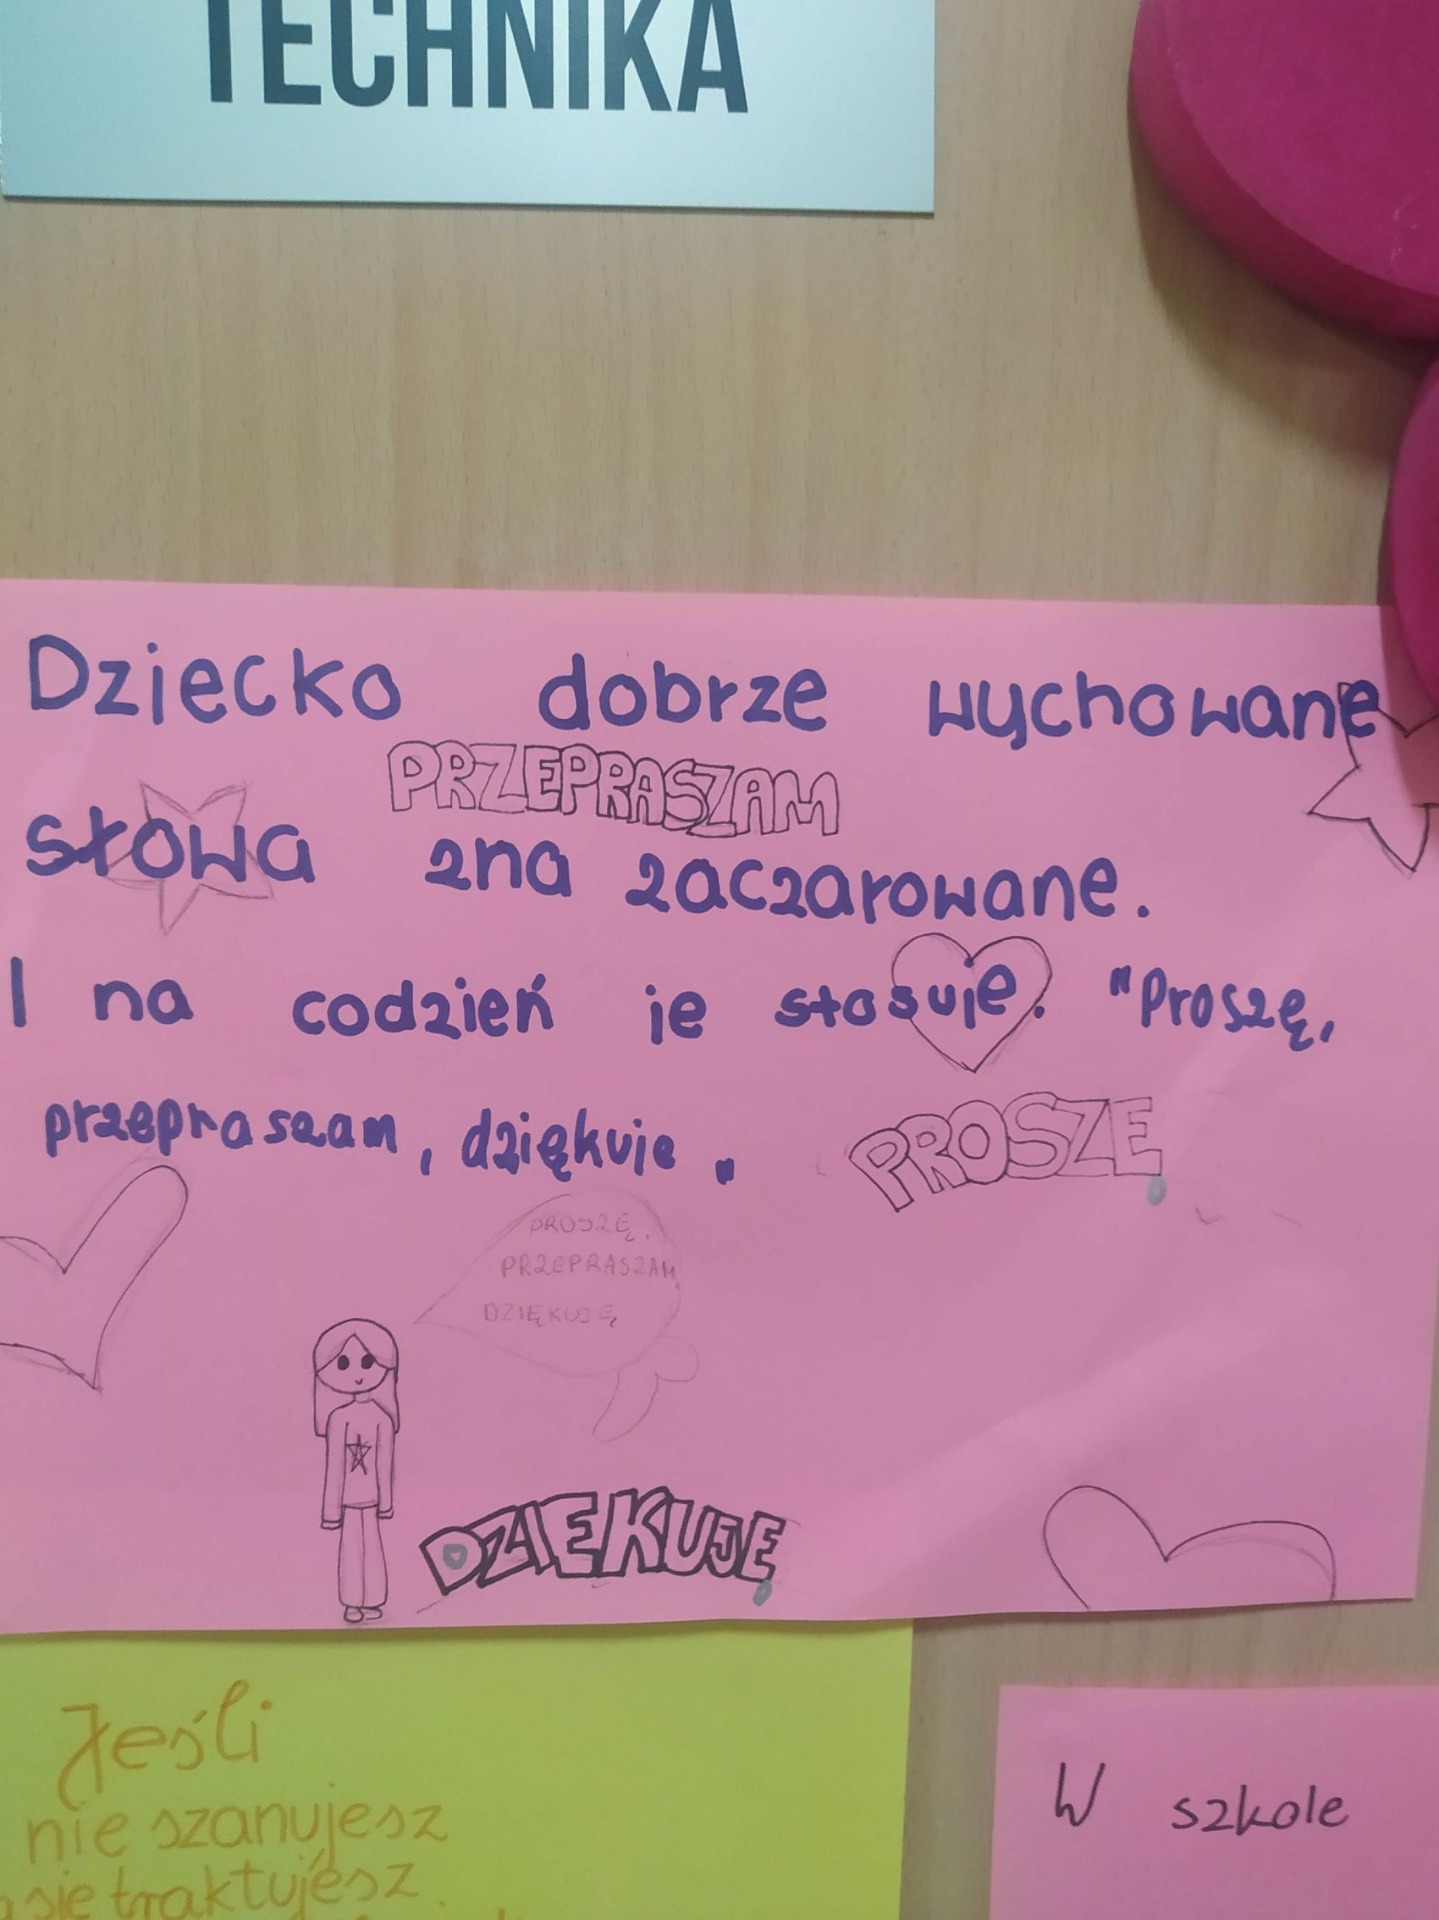 TECHNIKA
Dziecko dobrze wychowane
PRZEPRASZAM
słowa zna zaczarowane.
I na codzień je stosuje. "Proszę,
przepraszam, dziękuje "
PROSZĘ
PROSZĘ,
PRZEPRASZAM,
DZIĘKUJĘ
DZIEKUJĘ
Jeśli
nie szanujesz
się traktujesz
W szkole